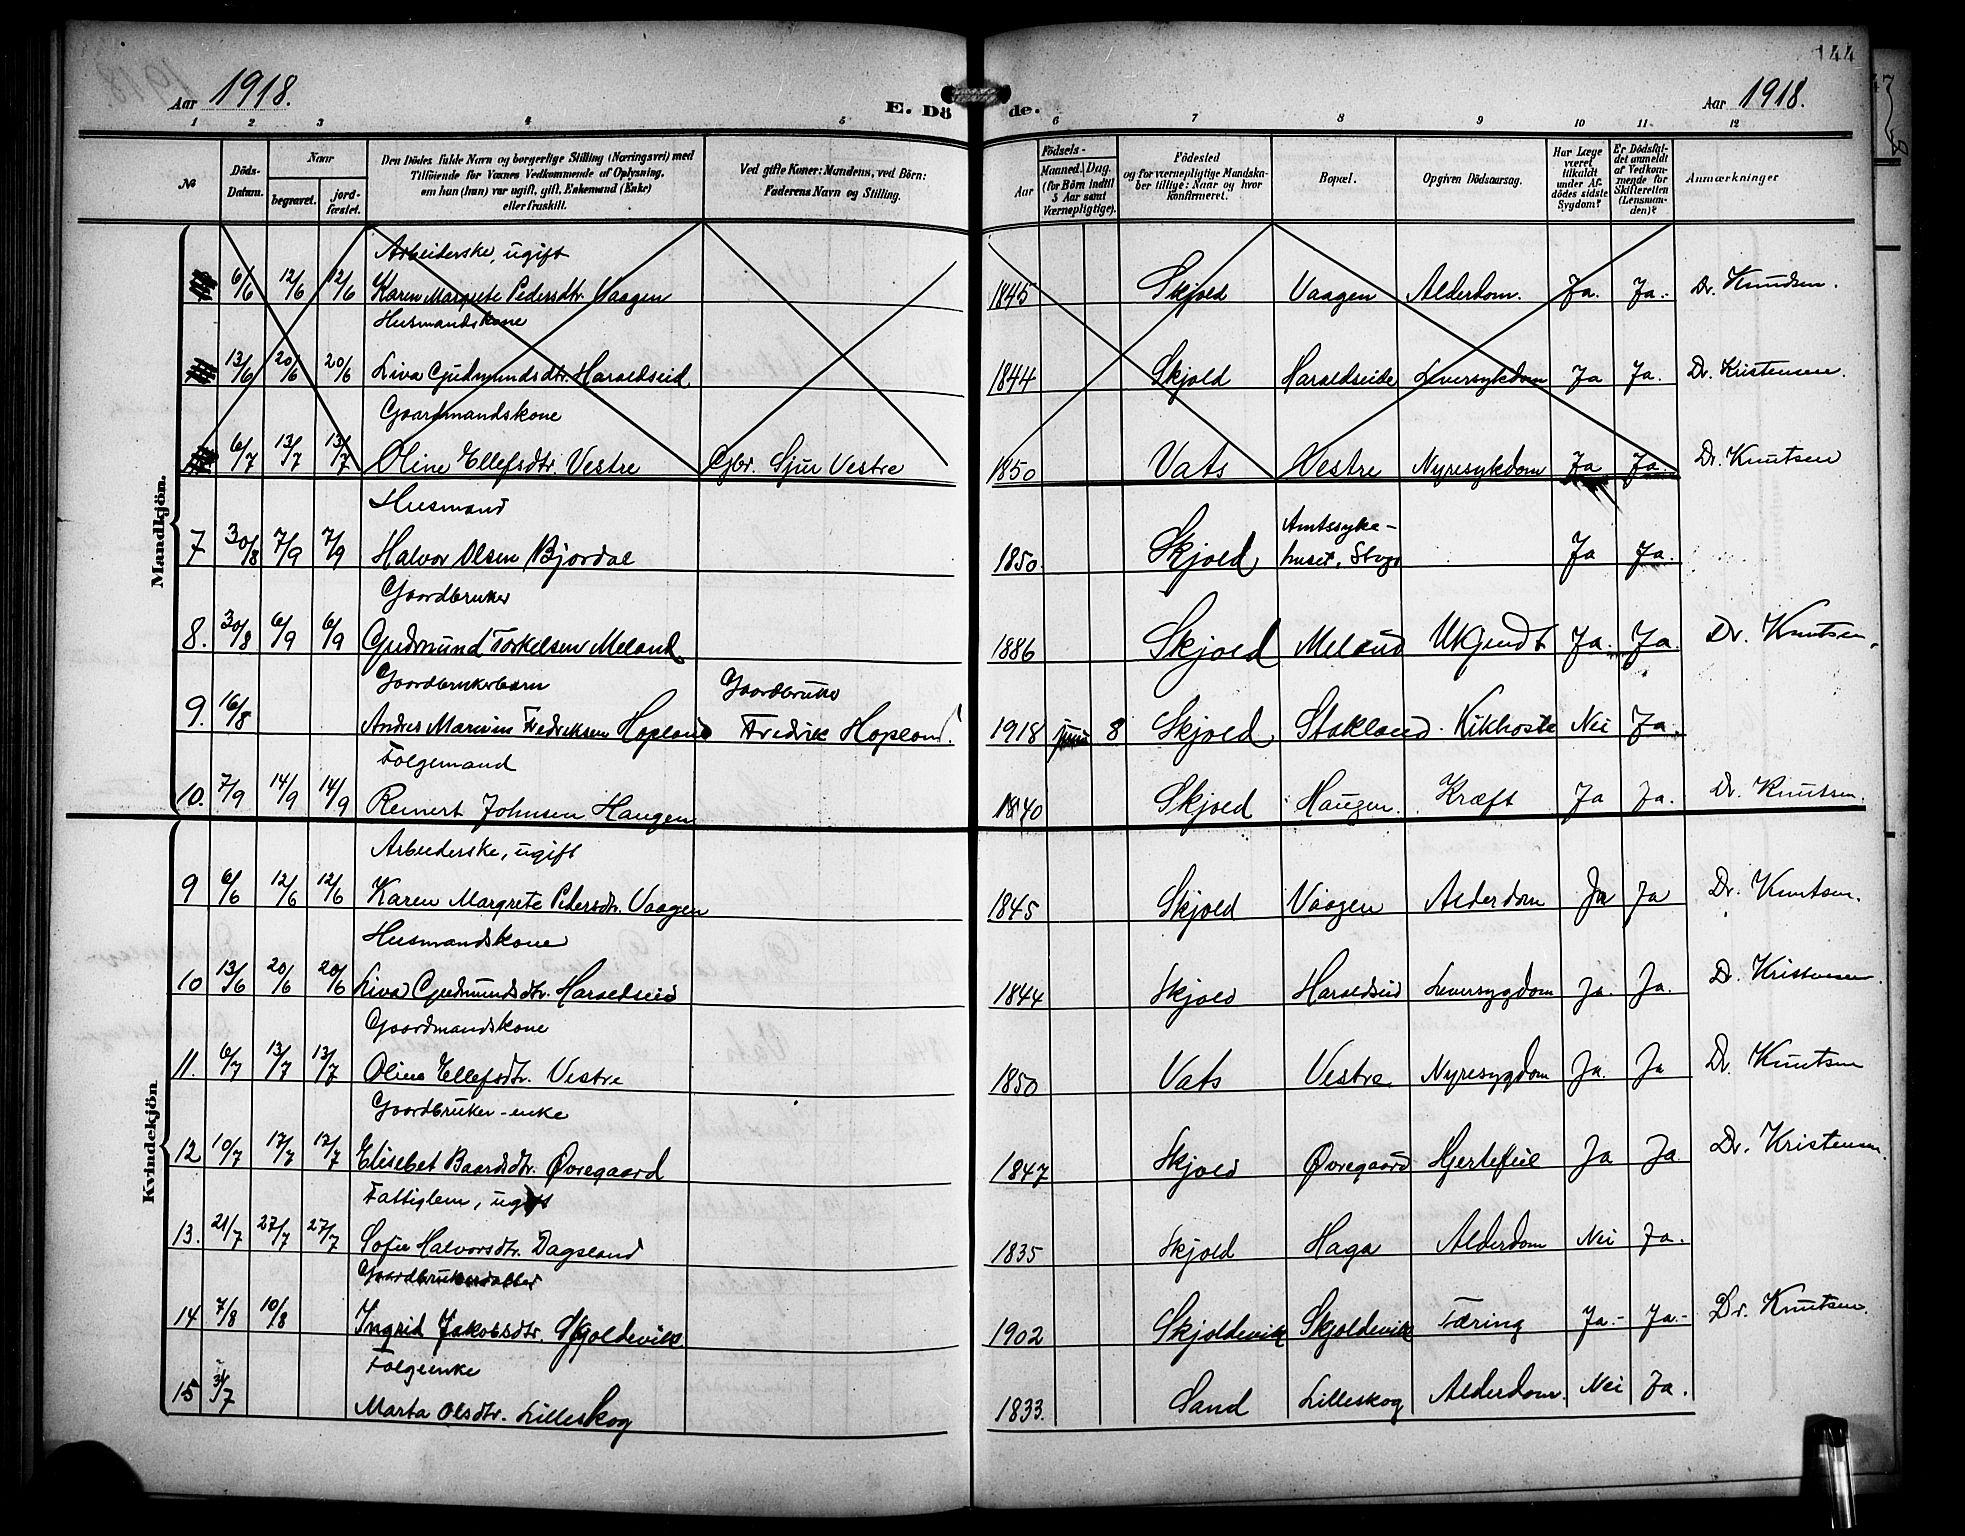 144
Aar 1918.
E. Döde.
Aar 1918.
1 2 3 4 5 6 7 8 9 10 11 12
No
Döds-Datum.
Naar
begravet.
jordfæstet.
Den Dödes fulde Navn og borgerlige Stilling (Næringsvei) med
Tilföiende for Voxnes Vedkommende af Oplysning,
om han (hun) var ugift, gift, Enkemand (Enke)
eller fraskilt.
Ved gifte Koner: Mandens, ved Börn:
Faderens Navn og Stilling.
Födsels-
Aar
Maaned. Dag.
(for Börn indtil
5 Aar samt
Værnepligtige).
Födested
og for værnepligtige Mandskaber tillige: Naar og hvor
konfirmeret.
Bopæl.
Opgiven Dödsaarsag.
Har Læge
været
tilkaldt
under Afdödes sidste
Sygdom?
Er Dödsfaldet anmeldt
af Vedkommende for
Skifteretten
(Lensmanden)?
Anmærkninger
Mandkjön.
Arbeiderske, ugift
6/6 12/6 12/6 Karen Margrete Pedersdtr. Vaagen 1845 Skjold Vaagen Alderdom. Ja. Ja. Dr. Knudsen.
Husmandskone
13/6 20/6 20/6 Liva Gudmundsdtr. Haraldseid 1844 Skjold Haraldseide Leversykdom Ja Ja. Dr. Kristensen.
Gaardmandskone
6/7 13/7 13/7 Oline Ellefsdtr. Vestre Gbr. Sjur Vestre 1850 Vats Vestre Nyresykdom Ja Ja. Dr. Knutsen
Husmand
7 30/8 7/9 7/9 Halvor Olsen Bjordal 1850. Skjold Amtssykehuset, Stvgr Ja Ja.
Gaardbruker
8. 30/8 6/9 6/9 Gudmund Torkelsen Meland 1886 Skjold Meland Ukjendt Ja. Ja. Dr. Knutsen.
Gaardbrukerbarn Gaardbruker
9. 16/8 Andres Marius Fredriksen Hopland Fredrik Hopland. 1918 juni 8 Skjold Stakland Kikhoste Nei Ja.
Folgemand
10. 7/9 14/9 14/9 Reinert Johnsen Haugen 1840 Skjold Haugen. Kræft Ja Ja. Dr. Knutsen.
Kvindekjön
Arbeiderske, ugift
9 6/6 12/6 12/6 Karen Margrete Pedersdtr. Vaagen 1845 Skjold Vaagen Alderdom Ja Ja Dr. Knutsen.
Husmandskone
10 13/6 20/6 20/6 Liva Gudmundsdtr. Haraldseid 1844 Skjold Haraldseid Leversygdom Ja. Ja. Dr. Kristensen
Gaardmandskone
11. 6/7 13/7 13/7 Oline Ellefsdtr. Vestre 1850 Vats Vestre Nyresygdom Ja. Ja Dr. Knutsen
Gaardbruker-enke
12 10/7 17/7 17/7 Elisebet Baardsdtr. Øvregaard 1847 Skjold Øvregaard Hjertefeil Ja Ja Dr. Kristensen.
Fattiglem, ugift
13. 21/7 27/7 27/7 Sofie Halvorsdtr. Dagsland 1835 Skjold Haga Alderdom Nei Ja.
Gaardbrukerdatter
14 7/8 10/8 Ingrid Jakobsdtr. Skjoldevik 1902 Skjoldevik Skjoldevik Tæring Ja.- Ja.- Dr. Knutsen.
Folgeenke
15 31/7 Marta Olsdtr. Lilleskog 1833. Sand Lilleskog Alderdom. Nei Ja.